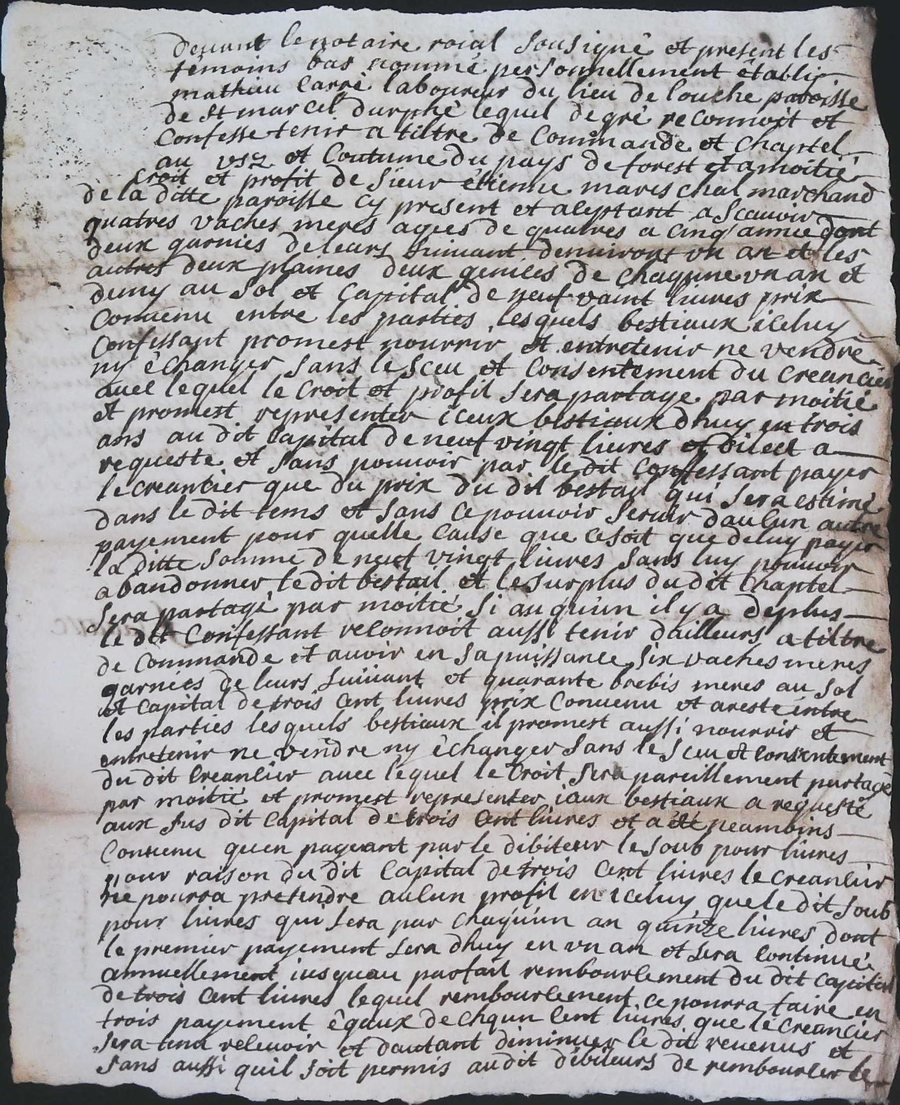 devant le notaire roial sousigné et present les
témoins bas nommé personnellement établis
mathieu Carré laboureur du lieu de louche paroisse
de St marcel durphé lequel de gré reconnoit et
Confesse tenir a tiltre de Commande et Chaptel
au usz et Coutume du pays de forest et a moitié
Croit et profit de Sieur étienne mareschal marchand
de la ditte paroisse cy present et aleptant a scauoir
quatres vaches meres agées de quatres a cinq année dont
deux garnies de leurs suiuant denuiront un an et les
autres deux plaines deux genices de Chaqune un an et
demy au Sol et Capital de neuf vaint liures prix
Conuenu entre les parties lesquels bestiaux iceluy
Confessant promest nourrir et entretenir ne vendre
ny échanger sans le sceu et Consentement du Creancier
auec lequel le Croit et profil sera partagé par moitié
et promest representer iceux bestiaux dhuy en trois
ans au dit Capital de neuf vingt liures et a
requeste et sans pouuoir par le dit Confessant payer
le creancier que du prix du dit bestail qui sera estimé
dans le dit tems et sans ce pouuoir seruir daulun autre
payement pour quelle Cause que ce soit que de luy payer
la ditte somme de neuf vingt liures sans luy pouuoir
abandonner le dit bestail et le surplus du dit Chaptel
sera partagé par moitié si auquun il y a deplus
le dit Confessant reconnoit aussi tenir dailleurs a tiltre
de Commande et auoir en sa puissance six vaches meres
garnies de leurs suiuant et quarante brebis meres au sol
et Capital de trois Cent liures prix Conuenu et areste entre
les parties lesquels bestiaux il promest aussi nourrir et
entretenir ne vendre ny échanger sans le sceu et Consentement
du dit Creancier auec lequel le Croit sera pareillement partagé
par moitié et promest representer iceux bestiaux a requeste
aux sus dit Capital de trois Cent liures et a été neamoins
Conuenu quen payant par le dibiteur le soub pour liures
pour raison du dit Capital de trois Cent liures le creancier
ne pourra pretendre auCun profil en iceluy que le dit soub
pour liures qui sera par Chaquun an quinze liures dont
le premier payement sera dhuy en un an et sera Continué
annuellement iusquau parfait remboursement du dit Capital
de trois Cent liures lequel remboursement ce pourra faire en
trois payement égaux de chqun Cent liures que le Creancier
sera tenu receuoir et dautant diminuer le dit reuenus et
sans aussi quil soit permis au dit dibiteurs de rembourcer le